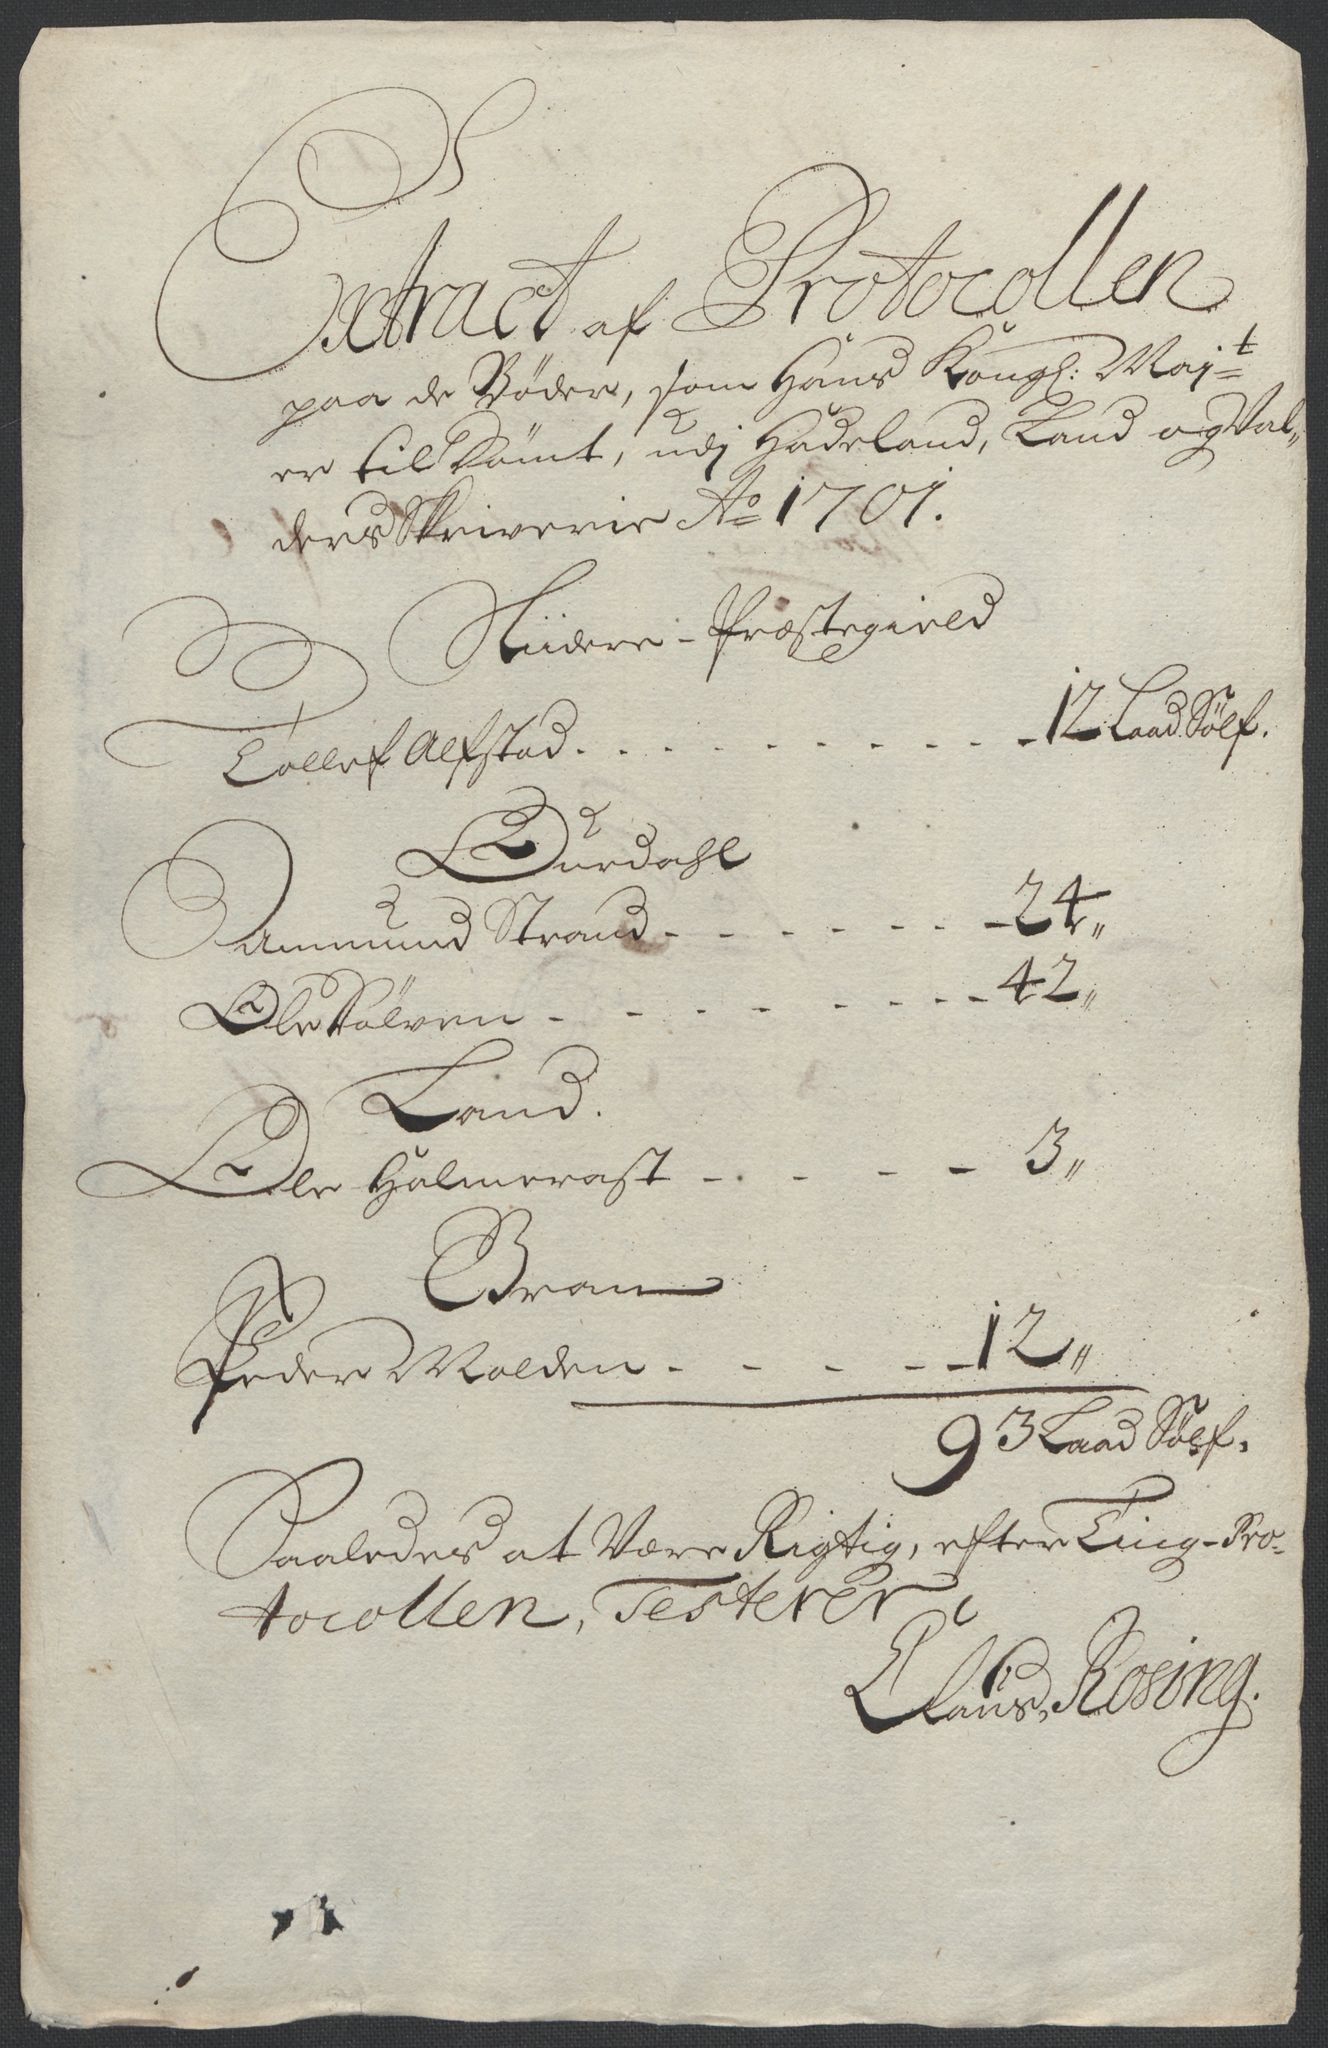 Extract af Protocollen
paa de Bøder, som Hans Kongl: Maj:t
er til Dømt, udj Hadeland, Land og Val-
ders Skriverie Ao 1701.
Sliidere-Præstegield
Tollef Alfstad - - - 12 Laad Sølf.
Ourdahl
Ammund Strand - - - 24"
Ole Sølven - - - 42"
Land.
Ole Holmerast - - - 3"
Gran
Peder Molden - - - 12"
93 Laad Sølf.
Saaledes at Være Rigtig, efter Ting-Pro-
tocollen, Testerer
Claus Rosing.